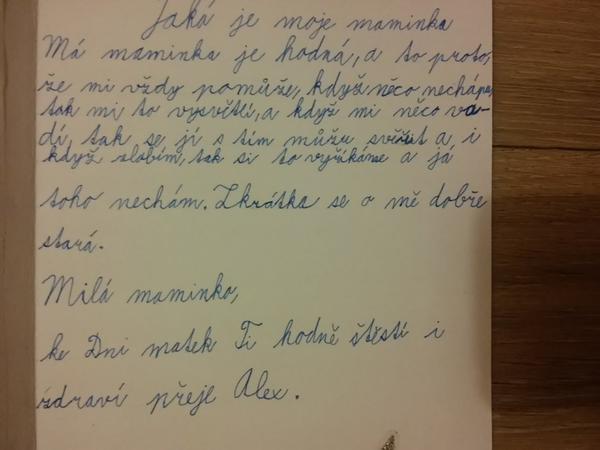 Jaká je moje maminka
Má maminka je hodná, a to proto,
že mi vždy pomůže, když něco nechápu,
tak mi to vysvětlí, a když mi něco va-
dí, tak se jí s tím můžu svěřit a i
když zlobím, tak si to vyříkáme a já
toho nechám. Zkrátka se o mě dobře
stará.
Milá maminko,
ke Dni matek Ti hodně štěstí i
zdraví přeje Alex.